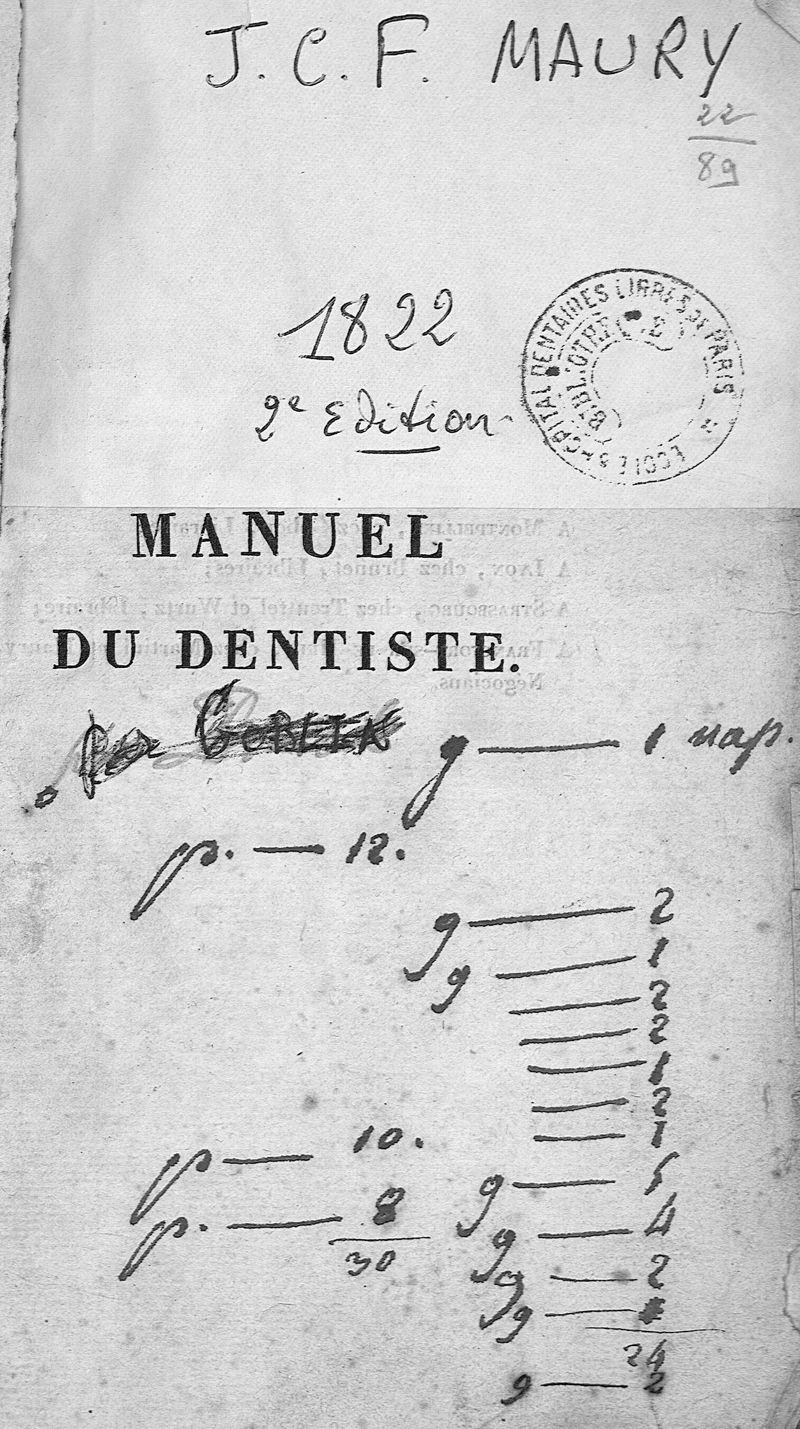 J. C. F. MAURY
22
89
1822
2e Edition
HOPITAL DENTAIRES LIBRES DE PARIS
MANUEL
DU DENTISTE.
g — 1 nap.
p. — 12.
g — 2
g — 1
— 2
— 2
— 1
— 2
— 1
p — 10.
g —
p. — 8
g — 4
30
g — 2
g —
24
g — 2